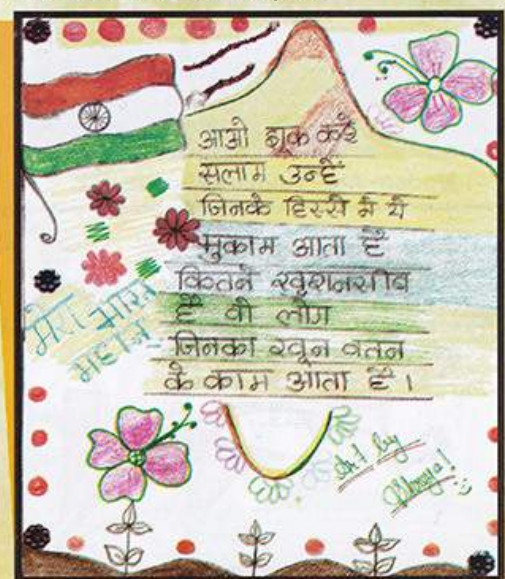 आओ झुक कर
सलाम उन्हें
जिनके हिस्से मे ये
मुकाम आता है
कितने खुशनसीब
है वो लोग
जिनका खून वतन
के काम आता है।
मेरा भारत
महान
Art by